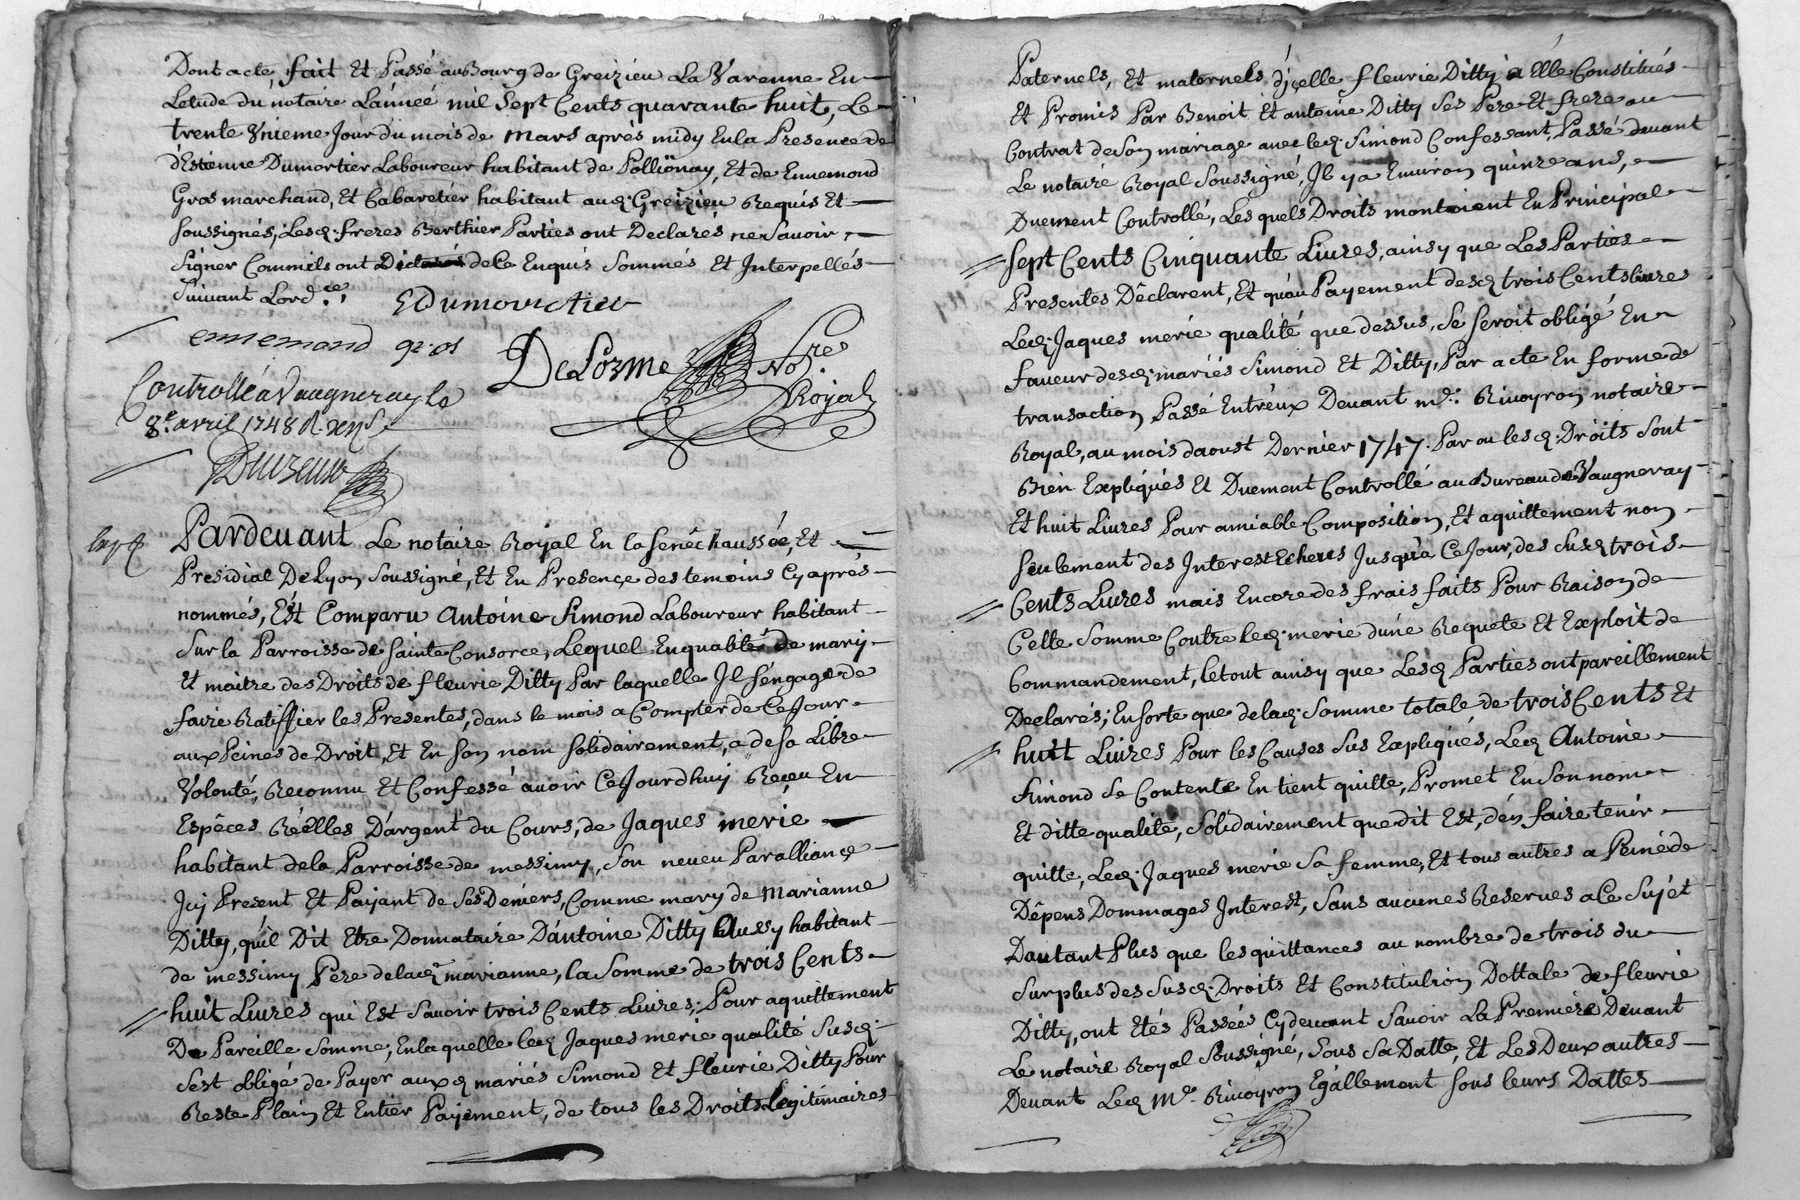 Dont acte, fait Et Passé au Bourg de Greizieu La Varenne En
Letude du notaire L'année mil sept Cents quarante huit, Le
trente Vnieme Jour du mois de mars aprés midy En la Presence de
d'Estienne Dumortier Laboureur habitant de Pollionay, Et de Ennemond
Gros marchand, Et Cabaretiér habitant aud. Greizieu Requis Et
Soussignés, Lesd. freres Berthier Parties ont Declarés ne Savoir
Signer Comm'ils ont de Ce Enquis Sommés Et Interpellés
Suivant Lord.ce.
EDumortier
ennemond gros
DeLorme No.re Royal
Controllé a Vaugneray le
8.e avril 1748 R.
Pardevant Le notaire Royal En la Senêchaussée, Et
Presidial De Lyon Soussigné, Et En Presence des temoins Cy aprés
nommés, Est Comparu Antoine Simond Laboureur habitant
Sur la Parroisse de Sainte Consorce, Lequel En qualité de mary
Et maitre des Droits de fleurie Ditty Par laquelle Il s'engage de
faire Ratiffier les Presentes, dans le mois a Compter de Ce Jour
aux Peines de Droit, Et En Son nom Solidairement, a de Sa Libre
Volonté, Reconnu Et Confessé avoir Ce Jourdhuy Reçeu En
Espêces Réelles D'argent du Cours, de Jaques merie
habitant de la Parroisse de messimy, Son neveu Par alliance
Icy Present Et Payant de Ses Deniers, Comme mary de Marianne
Ditty, qu'il Dit Etre Donnataire D'antoine Ditty Aussy habitant
de messimy Pere de lad. marianne, la Somme de trois Cents
huit Livres qui Est Savoir trois Cents Livres, Pour aquittement
De Pareille Somme, En laquelle led. Jaques merie qualité Susd.
Sest obligé de Payer auxd. mariés Simond Et fleurie Ditty Pour
Reste Plain Et Entier Payement, de tous les Droits Legitimaires
Paternels, Et maternels d'içelle fleurie Ditty a Elle Constitués
Et Promis Par Benoit Et antoine Ditty Ses Pere Et frere au
Contrat de Son mariage avec led. Simond Confessant, Passé devant
Le notaire Royal Soussigné, Il y a Environ quinze ans,
Duement Controllé, Lesquels Droits montoient En Principal
Sept Cents Cinquante Livres, ainsy que Les Parties
Presentes Dêclarent, Et qu'au Payement desd. trois Cents livres
Led. Jaques merie qualité que dessus, Se Seroit obligé En
faveur desd. mariés Simond Et Ditty, Par acte En forme de
transaction Passé Entr'eux Devant m.e Rivoyron notaire
Royal, au mois daoust Dernier 1747. Par ou lesd. Droits Sont
Bien Expliqués Et Duement Controllé au Bureau de Vaugneray
Et huit Livres Pour amiable Composition, Et aquittement non
Seulement des Interest Echeus Jusqu'a Ce Jour, des Susd. trois
Cents Livres mais Encore des frais faits Pour Raison de
Cette Somme Contre led. merie d'une Requete Et Exploit de
Commandement, le tout ainsy que Lesd. Parties ont pareillement
Declarés; En Sorte que de lad. Somme totale de trois Cents Et
huit Livres Pour les Causes Sus Expliqués, Led. Antoine
Simond Se Contente En tient quitte, Promet En Son nom
Et ditte qualité, Solidairement que dit Est, d'en faire tenir
quitte, Led. Jaques merie Sa femme, Et tous autres a Peine de
Dêpens Dommages Interest, Sans aucunes Reserves a Ce Sujet
Dautant Plus que les quittances au nombre de trois du
Surplus des Susd. Droits Et Constitution Dottale de fleurie
Ditty, ont Etés Passées Cy devant Savoir La Premiere Devant
Le notaire Royal Soussigné, Sous Sa Datte, Et Les Deux autres
Devant Led. M.e Rivoyron Egallement Sous leurs Dattes